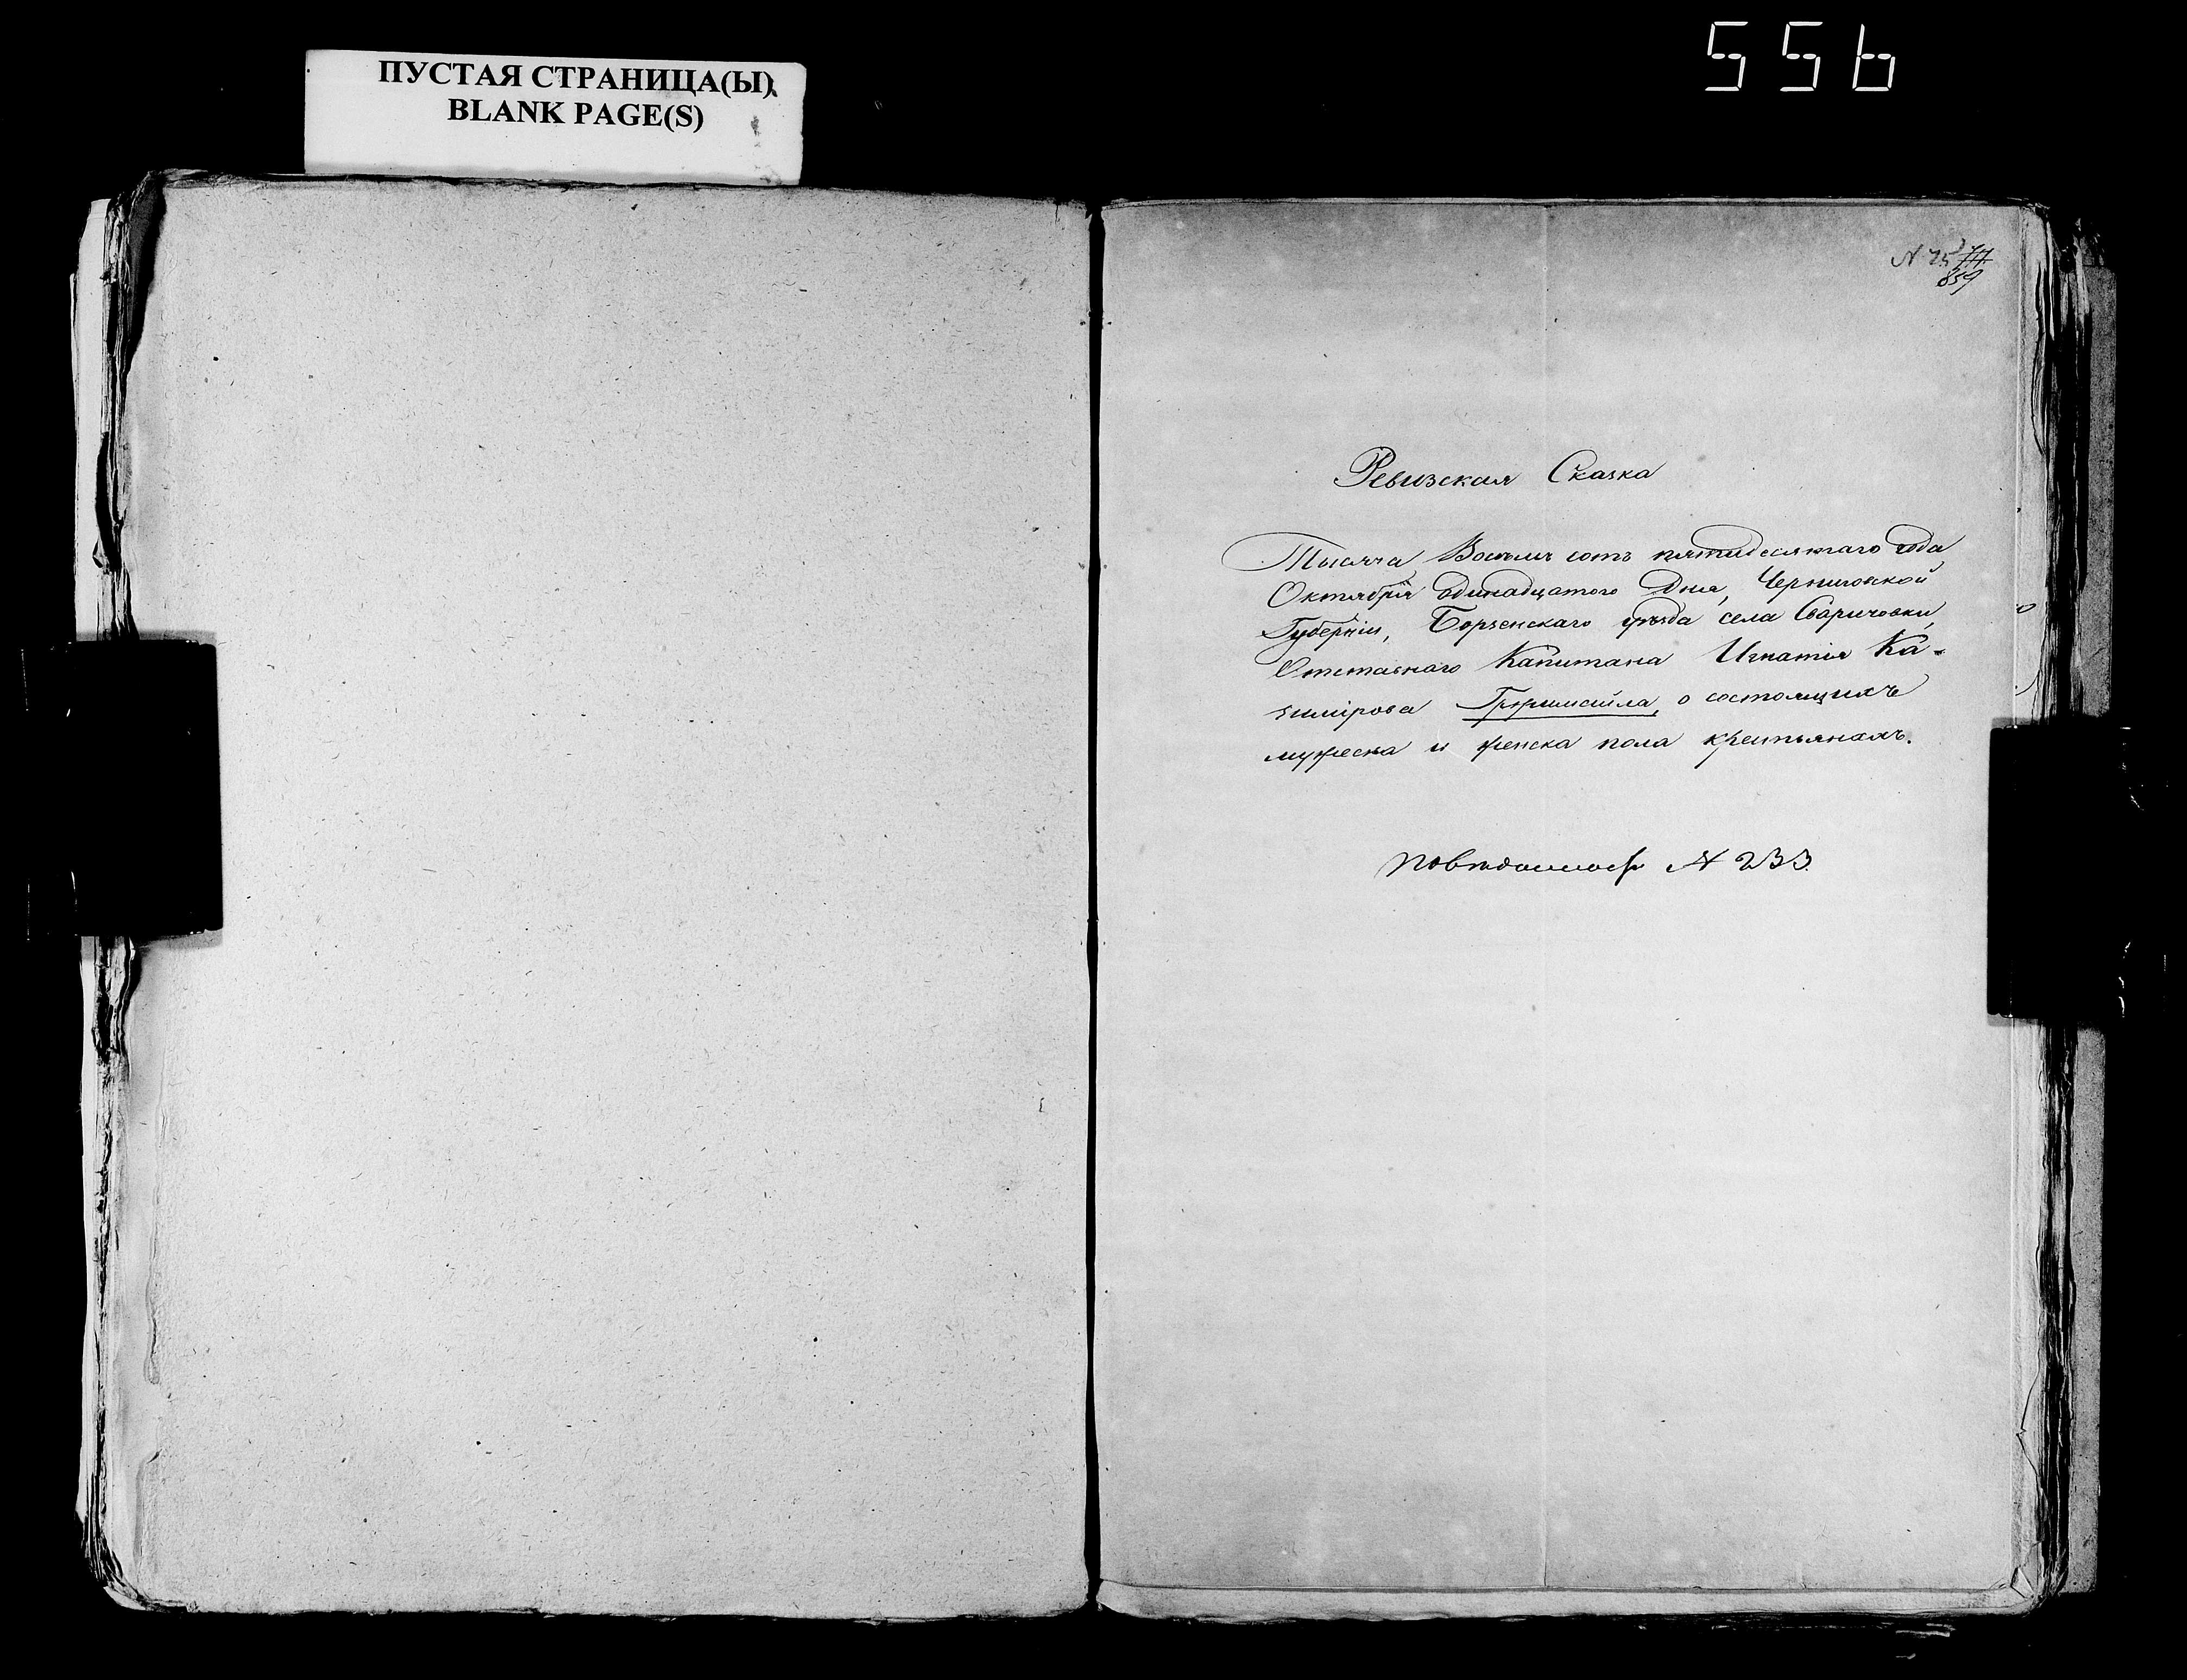 556
ПУСТАЯ СТРАНИЦА(Ы)
BLANK PAGE(S)
N 75
859
Ревизская Сказка
Тысяча Восемь сотъ пятидесятаго года
Октября одинадцатого Дня, Черниговской
Губерніи, Борзенскаго уѣзда села Сваричовки,
Отставнаго Капитана Игнатія Ка-
зимірова о состоящихъ
мужеска и женска пола крестьянахъ.
N 233